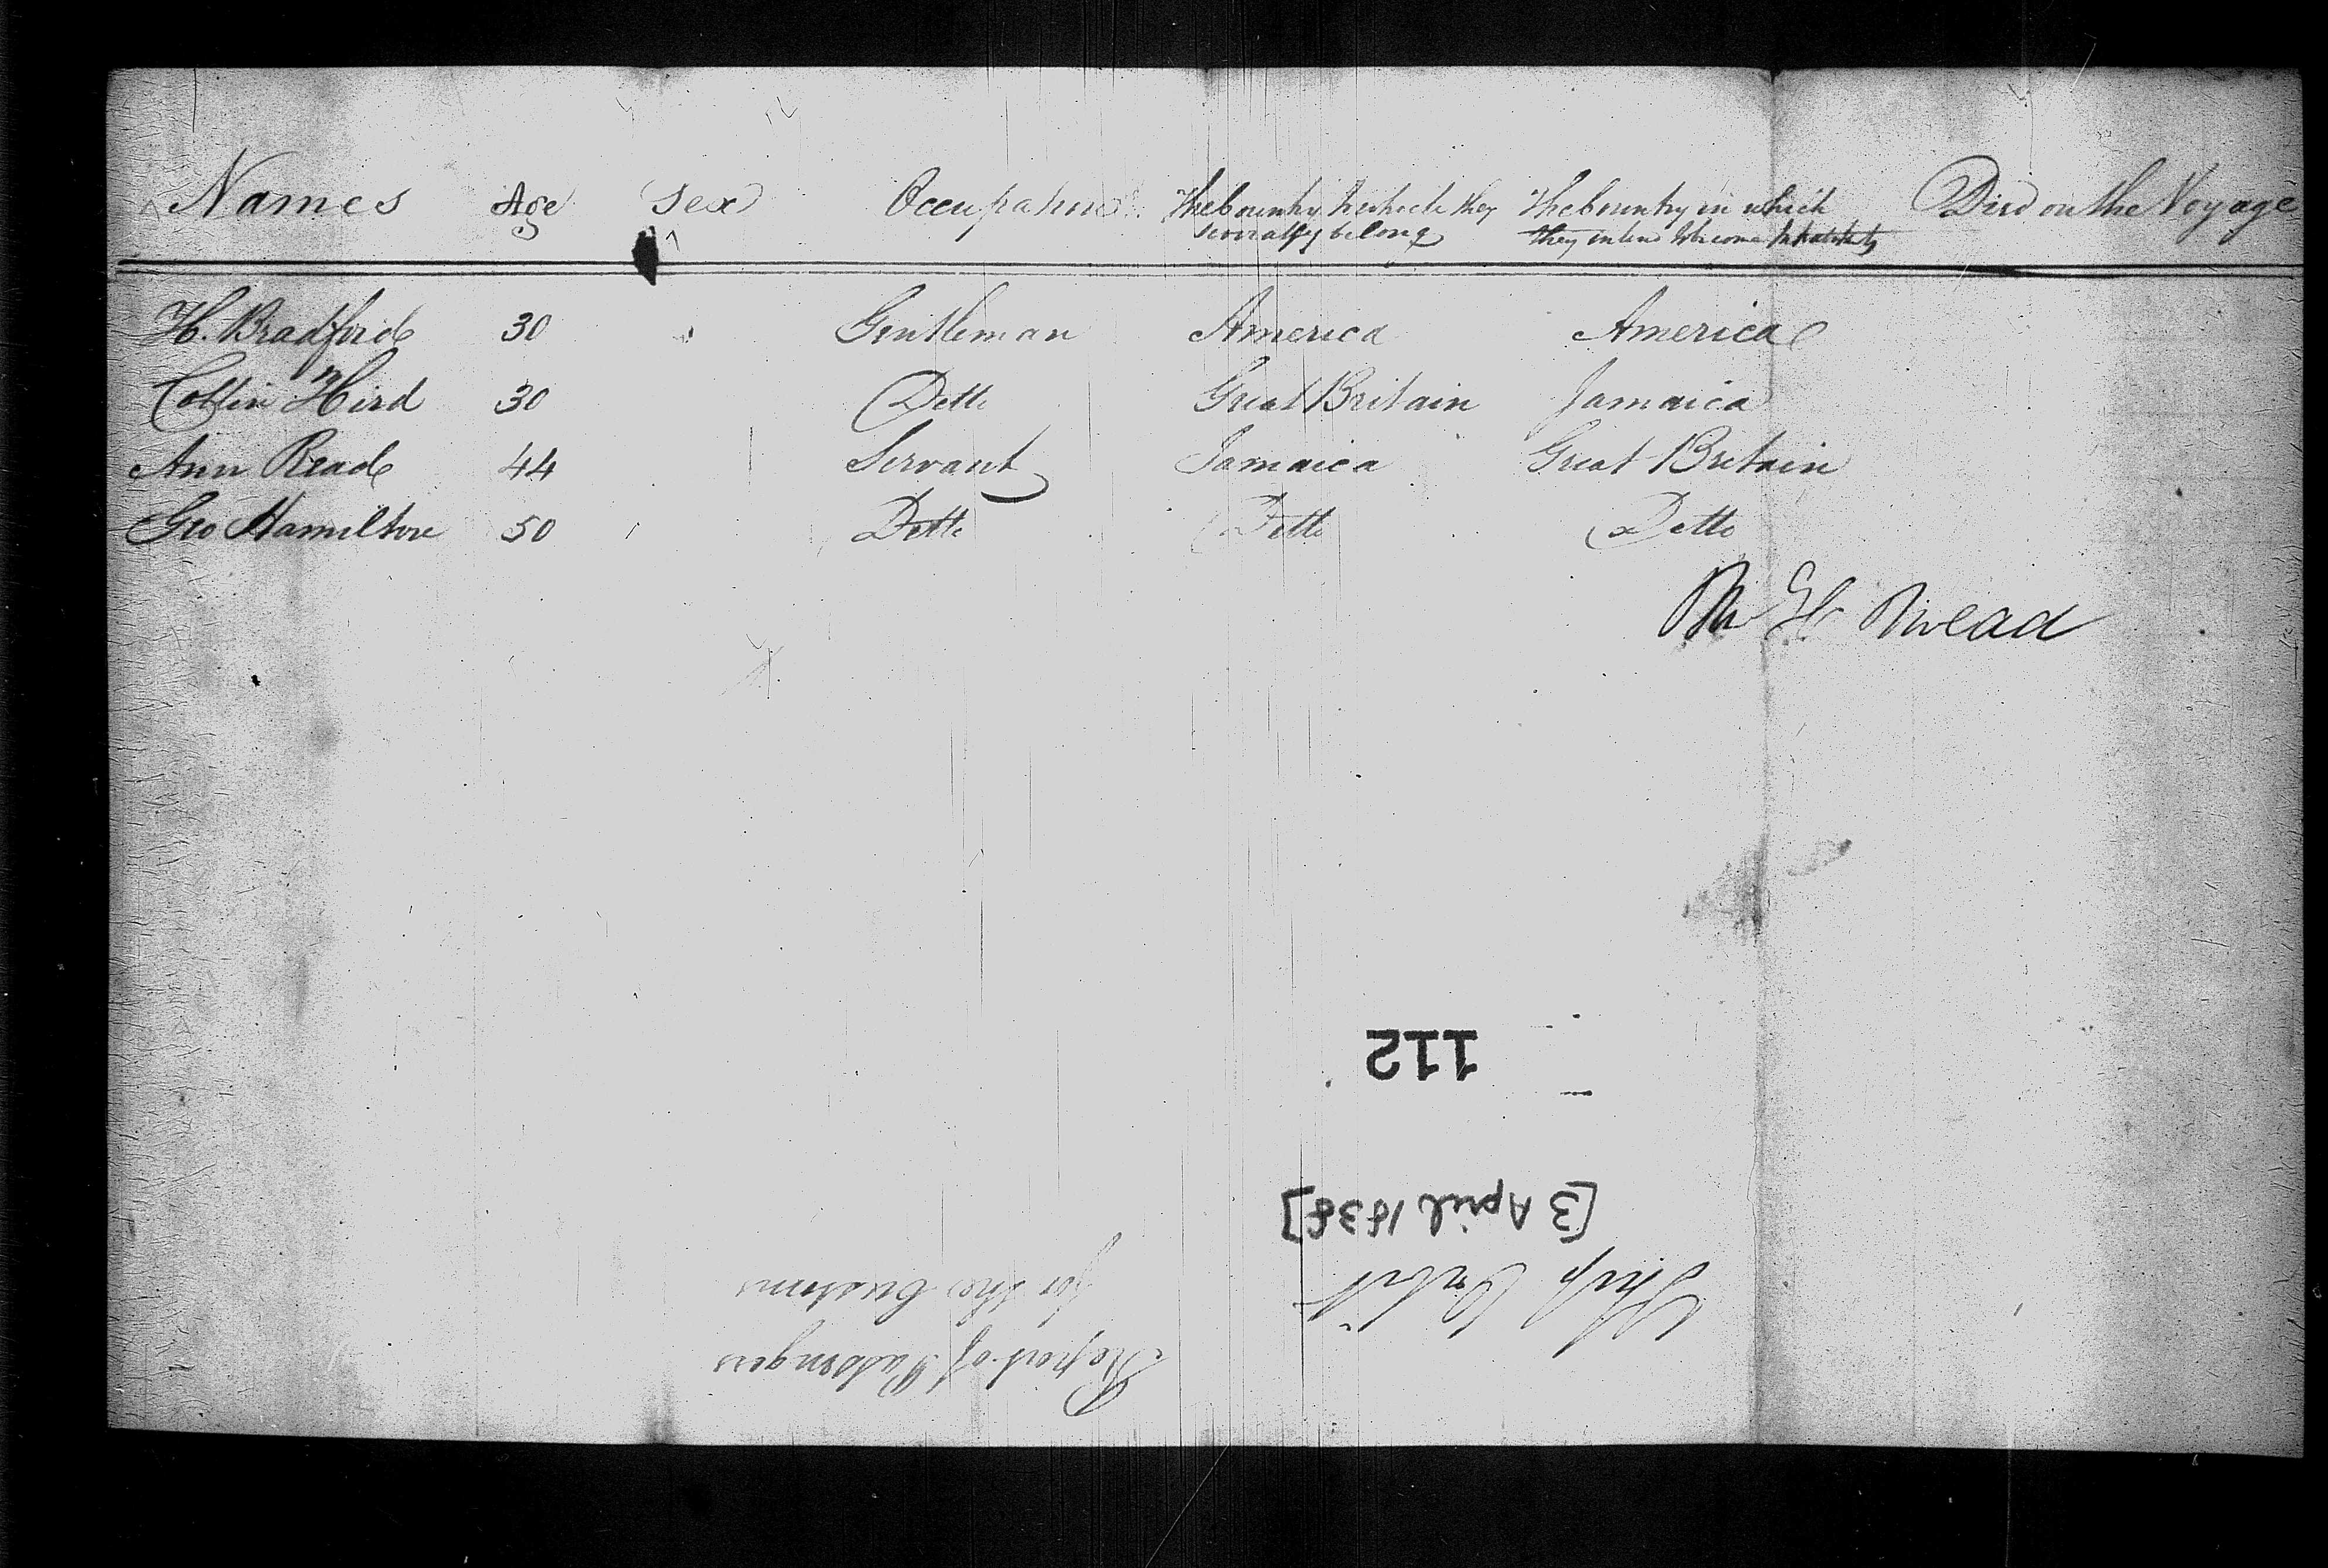 Names Age Sex Occupation The Country to which they severally belong The Country in which they intend to become Inhabitants Died on the Voyage
H. Bradford 30 Gentleman America America
30 Ditto Great Britain Jamaica
Ann Read 44 Servant Jamaica Great Britain
Geo Hamilton 50 Ditto Ditto Ditto
Mead
112
[3 April 1838]
Ship Orbit
Report of Passengers
for the Customs